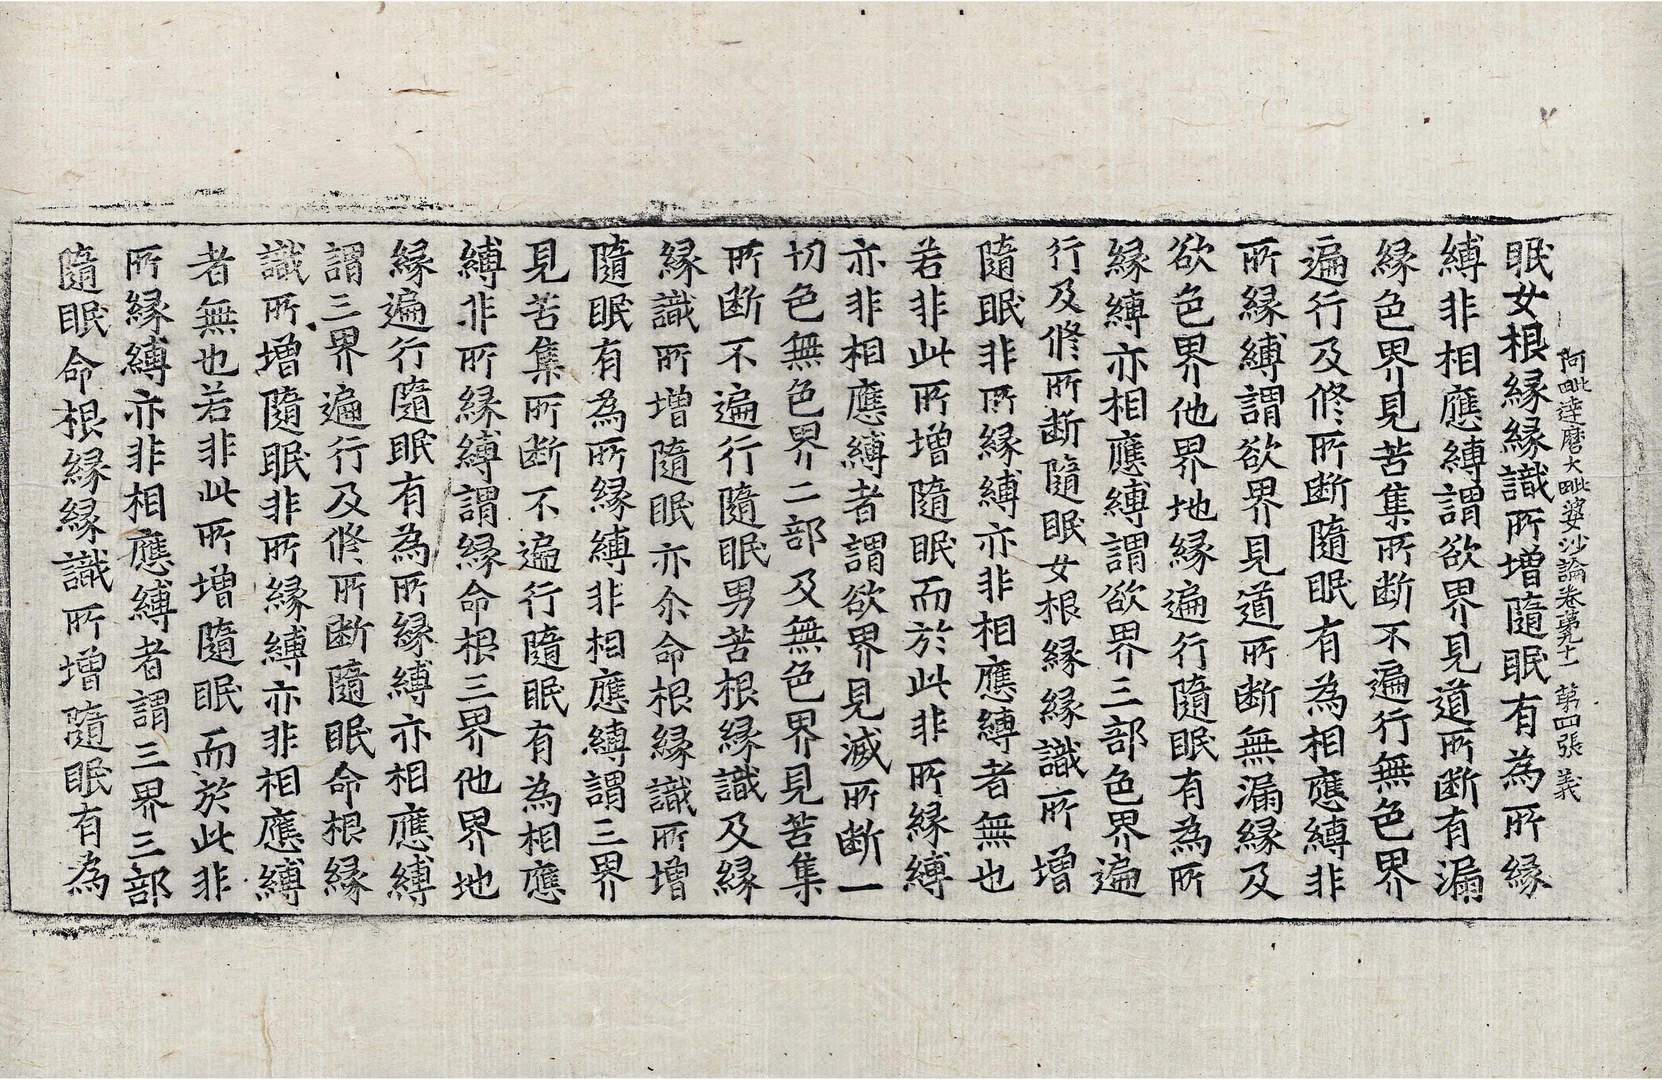 阿毗達磨大毗婆沙論卷第九十一 第四張 義
眠女根緣緣識所增隨眠有為所緣
縛非相應縛謂欲界見道所斷有漏
緣色界見苦集所斷不遍行無色界
遍行及修所斷隨眠有為相應縛非
所緣縛謂欲界見道所斷無漏緣及
欲色界他界地緣遍行隨眠有為所
緣縛亦相應縛謂欲界三部色界遍
行及修所斷隨眠女根緣緣識所增
隨眠非所緣縛亦非相應縛者無也
若非此所增隨眠而於此非所緣縛
亦非相應縛者謂欲界見滅所斷一
切色無色界二部及無色界見苦集
所斷不遍行隨眠男苦根緣識及緣
緣識所增隨眠亦尒命根緣識所增
隨眠有為所緣縛非相應縛謂三界
見苦集所斷不遍行隨眠有為相應
縛非所緣縛謂緣命根三界他界地
緣遍行隨眠有為所緣縛亦相應縛
謂三界遍行及修所斷隨眠命根緣
識所增隨眠非所緣縛亦非相應縛
者無也若非此所增隨眠而於此非
所緣縛亦非相應縛者謂三界三部
隨眠命根緣緣識所增隨眠有為